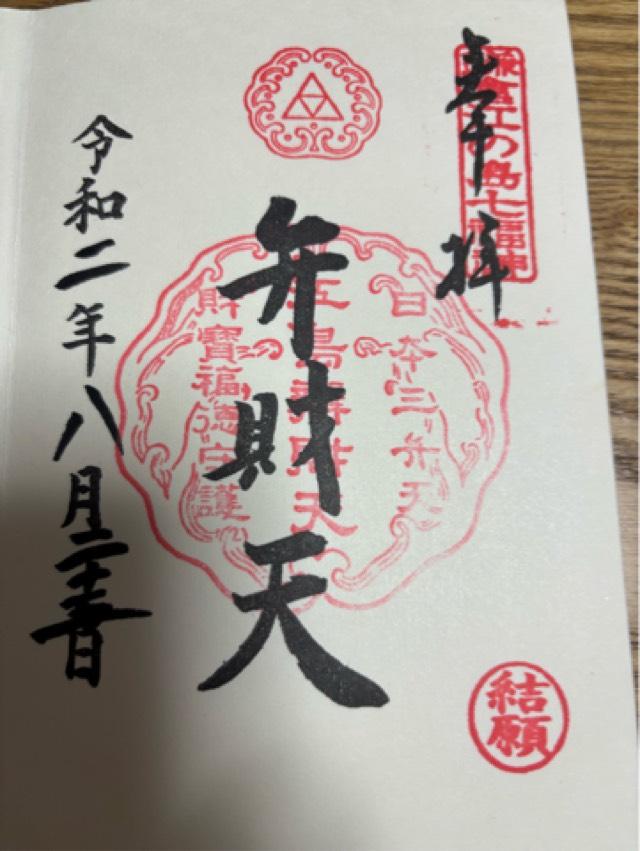 奉拝
鎌倉江の島七福神
弁財天
日本三弁天
江島 財天
財寶福徳守護
令和二年八月二十五日
結願